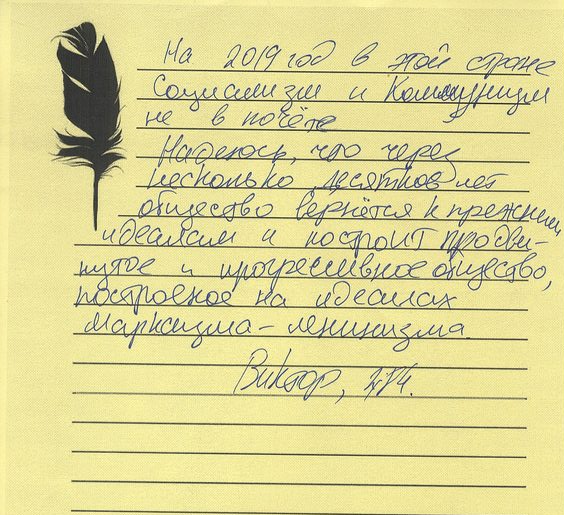 На 2019 год в этой стране
Социализм и Коммунизм
не в почёте
Надеюсь, что через
несколько десятков лет
общество вернётся к прежним
идеалам и построит продви-
нутое и прогрессивное общество,
построеное на идеалах
Марксизма-ленинизма.
Виктор,